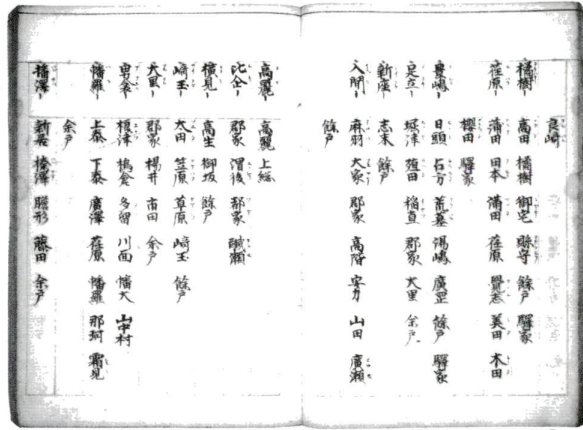 良崎
橘樹〻 高田 橘樹 御宅 縣守 餘戸 驛家
荏原〻 蒲田 田本 満田 荏原 覺志 美田 木田
櫻田 驛家
豊嶋〻 日頭 占方 荒墓 湯嶋 廣岡 餘戸 驛家
足立〻 堀津 殖田 稲直 郡家 大里 余戸
新座〻 志木 餘戸
入間〻 麻羽 大家 郡家 高階 安刀 山田 廣瀬
餘戸
高麗〻 高麗 上総
比企〻 郡家 渭後 都家 醎瀬
横見〻 高生 御坂 餘戸
埼玉〻 太田 笠原 草原 埼玉 餘戸
大里〻 郡家 楊井 市田 余戸
男衾〻 榎津 鵤倉 多留 川面 幡大 山中村
幡羅〻 上秦 下秦 廣澤 荏原 幡羅 那珂 霜見
余戸
榛澤〻 新居 榛澤 膽形 藤田 余戸